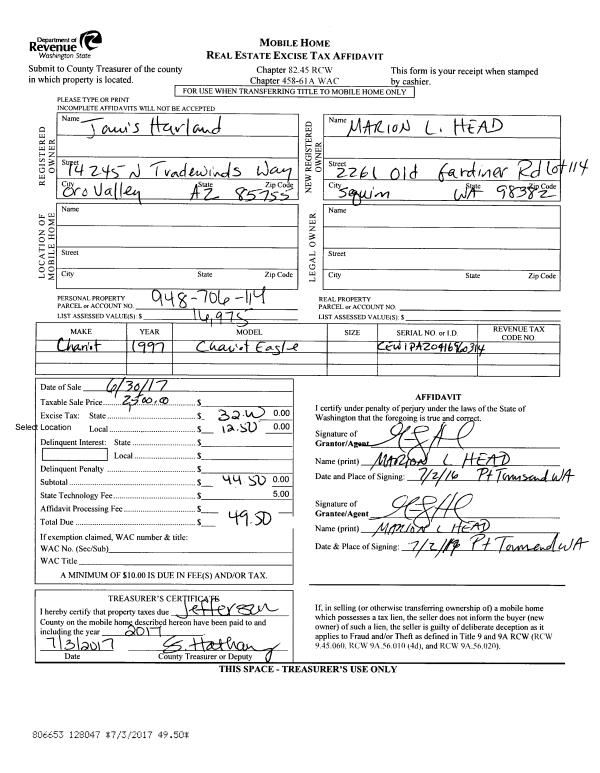 Department of
Revenue
Washington State
MOBILE HOME
REAL ESTATE EXCISE TAX AFFIDAVIT
Submit to County Treasurer of the county
in which property is located.
Chapter 82.45 RCW
Chapter 458-61A WAC
This form is your receipt when stamped
by cashier.
FOR USE WHEN TRANSFERRING TITLE TO MOBILE HOME ONLY
PLEASE TYPE OR PRINT
INCOMPLETE AFFIDAVITS WILL NOT BE ACCEPTED
REGISTERED OWNER
Name Harland
Street 74245 N Tradewinds Way
City Oro Valley State AZ Zip Code 85755
NEW REGISTERED OWNER
Name MARION L. HEAD
Street 2261 Old Gardiner Rd Lot 114
City Sequim State WA Zip Code 98382
LOCATION OF MOBILE HOME
Name
Street
City State Zip Code
LEGAL OWNER
Name
Street
City State Zip Code
PERSONAL PROPERTY
PARCEL or ACCOUNT NO. 948-706-114
LIST ASSESSED VALUE(S): $ 16,975
REAL PROPERTY
PARCEL or ACCOUNT NO.
LIST ASSESSED VALUE(S): $
MAKE YEAR MODEL SIZE SERIAL NO. or I.D. REVENUE TAX CODE NO.
Chariot 1997 Chariot Eagle
Date of Sale 6/30/17
Taxable Sale Price $ 2500.00
Excise Tax: State $ 32.00 0.00
Select Location Local $ 12.50 0.00
Delinquent Interest: State $
Local $
Delinquent Penalty $
Subtotal $ 44.50 0.00
State Technology Fee $ 5.00
Affidavit Processing Fee $
Total Due $ 49.50
If exemption claimed, WAC number & title:
WAC No. (Sec/Sub)
WAC Title
A MINIMUM OF $10.00 IS DUE IN FEE(S) AND/OR TAX.
AFFIDAVIT
I certify under penalty of perjury under the laws of the State of
Washington that the foregoing is true and correct.
Signature of
Grantor/Agent
Name (print) MARION L HEAD
Date and Place of Signing: 7/2/16 Pt Townsend WA
Signature of
Grantee/Agent
Name (print) MARION L HEAD
Date & Place of Signing: Pt Townsend WA
TREASURER'S CERTIFICATE
I hereby certify that property taxes due Jefferson
County on the mobile home described hereon have been paid to and
including the year 2017
7/3/2017
Date County Treasurer or Deputy
If, in selling (or otherwise transferring ownership of) a mobile home
which possesses a tax lien, the seller does not inform the buyer (new
owner) of such a lien, the seller is guilty of deliberate deception as it
applies to Fraud and/or Theft as defined in Title 9 and 9A RCW (RCW
9.45.060, RCW 9A.56.010 (4d), and RCW 9A.56.020).
THIS SPACE - TREASURER'S USE ONLY
806653 128047 *7/3/2017 49.50*